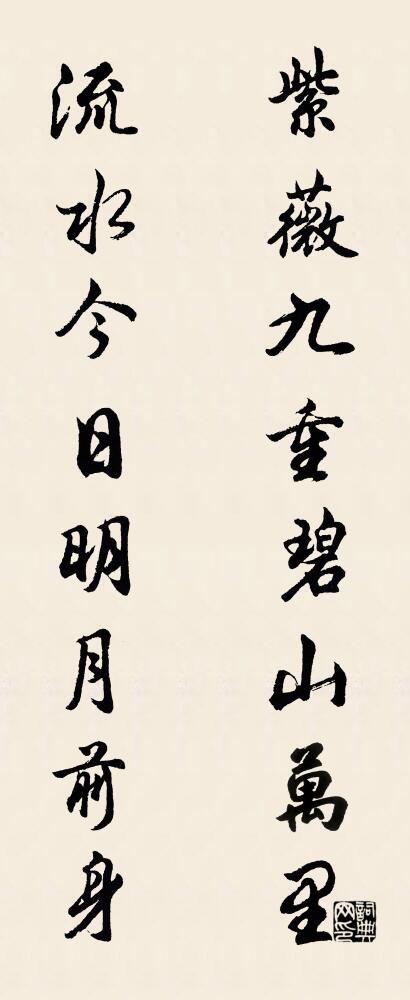 紫薇九重碧山萬里
流水今日明月前身
詞典网印